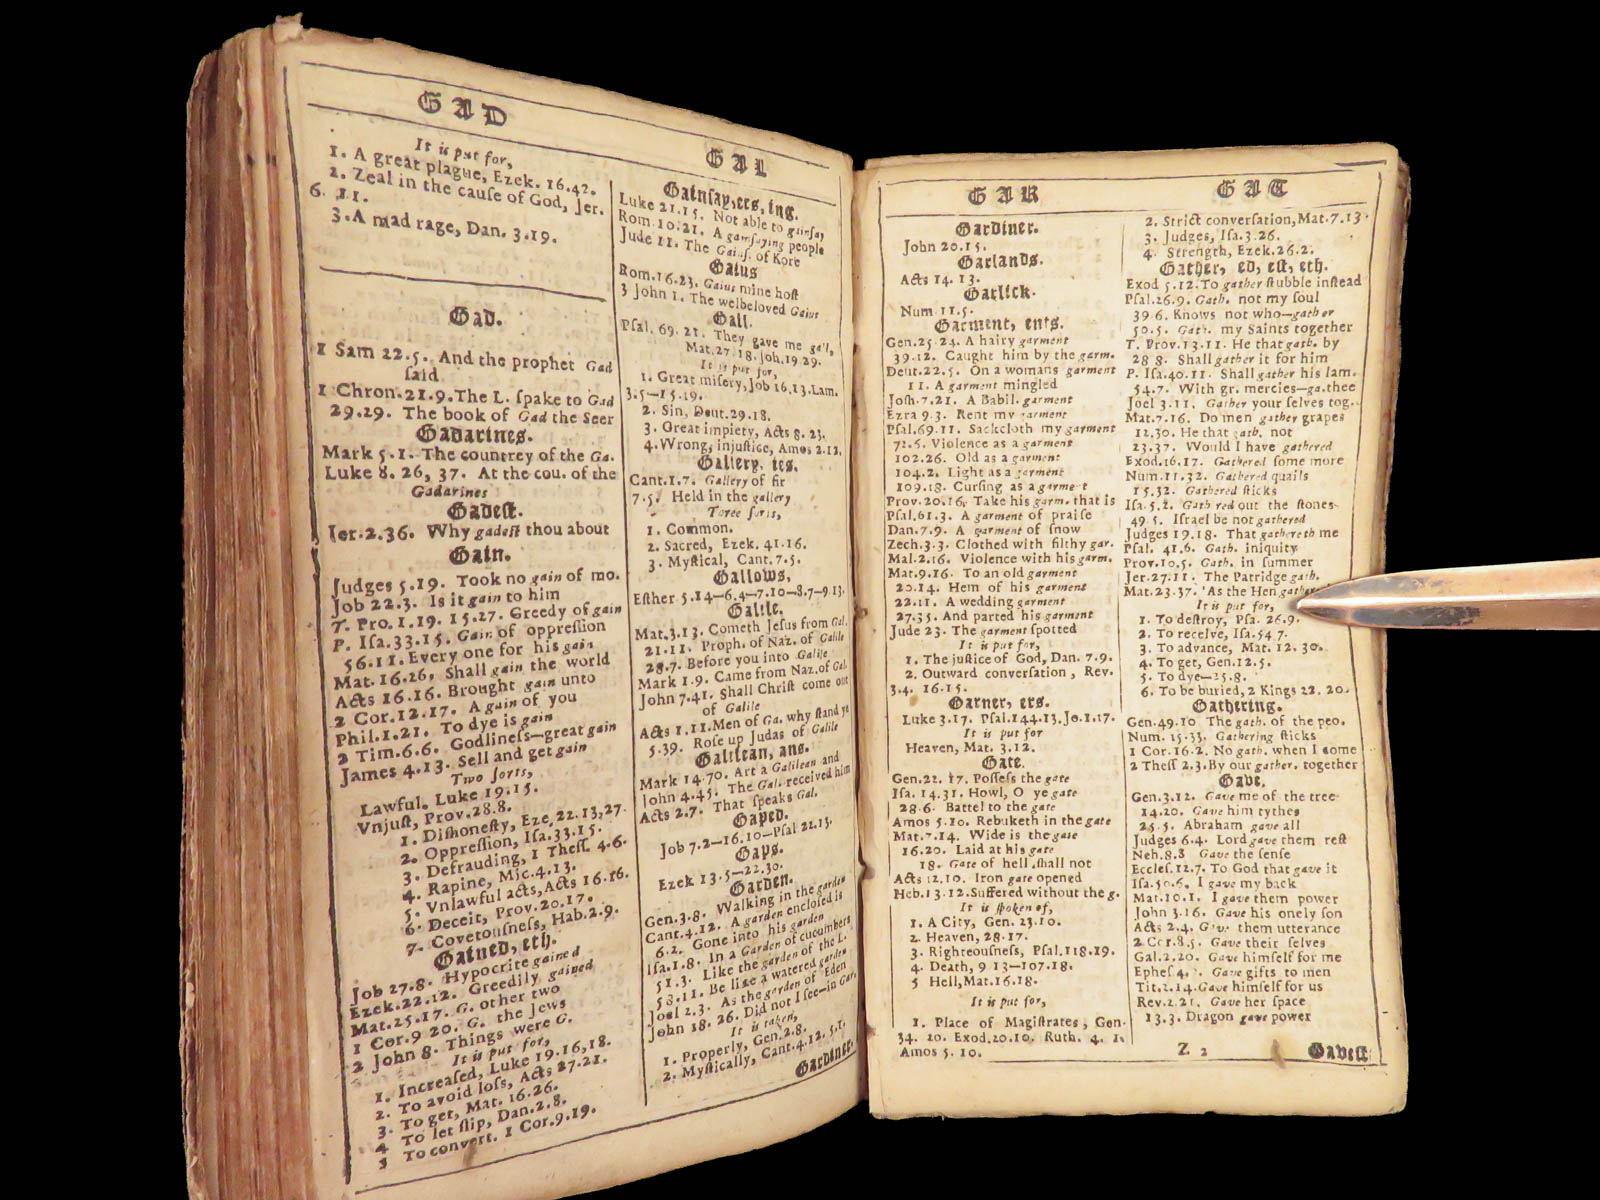 GAD
It is put for,
1. A great plague, Ezek. 16.42.
2. Zeal in the cauſe of God, Jer.
6. 11.
3. A mad rage, Dan. 3.19.
Gad.
1 Sam 22.5. And the prophet Gad
ſaid
1 Chron.21.9.The L. ſpake to Gad
29.29. The book of Gad the Seer
Gadarines.
Mark 5.1. The countrey of the Ga.
Luke 8. 26, 37. At the cou. of the
Gadarines
Gadeſt.
Jer.2.36. Why gadeſt thou about
Gain.
Judges 5.19. Took no gain of mo.
Job 22.3. Is it gain to him
T. Pro. 1.19. 15.27. Greedy of gain
P. Iſa.33.15. Gain of oppreſſion
56.11. Every one for his gain
Mat. 16.26, Shall gain the world
Acts 16.16. Brought gain unto
2 Cor.12.17. A gain of you
Phil.1.21. To dye is gain
2 Tim.6.6. Godlineſs—great gain
James 4.13. Sell and get gain
Two ſorts,
Lawful. Luke 19.15.
Vnjuſt, Prov.28.8.
1. Diſhoneſty, Eze.22.13,27.
2. Oppreſſion, Iſa.33.15.
3. Defrauding, 1 Theſſ. 4.6.
4. Rapine, Mic.4.13.
5. Vnlawful acts,Acts 16.16.
6. Deceit, Prov.20.17.
7. Covetouſneſs, Hab.2.9.
Gained, eth.
Job 27.8. Hypocrite gained
Ezek.22.12. Greedily gained
Mat.25.17. G. other two
1 Cor.9 20. G. the Jews
2 John 8. Things were G.
It is put for,
1. Increaſed, Luke 19.16,18.
2. To avoid loſs, Acts 27.21.
3. To get, Mat. 16.26.
4 To let ſlip, Dan.2.8.
5 To convert. 1 Cor.9.19.
GAL
Gainſay,ers, ing.
Luke 21.15. Not able to gainſay
Rom.10.21. A gainſaying people
Jude 11. The Gainſ. of Kore
Gaius
Rom.16.23. Gaius mine hoſt
3 John 1. The welbeloved Gaius
Gall.
Pſal. 69. 21. They gave me gall,
Mat.27 18. Joh.19 29.
It is put for,
1. Great miſery,Job 16.13.Lam.
3.5—15.19.
2. Sin, Deut.29.18.
3. Great impiety, Acts 8. 23.
4. Wrong, injuſtice, Amos 2.12.
Gallery, ies.
Cant.1.7. Gallery of fir
7.5. Held in the gallery
Three ſorts,
1. Common.
2. Sacred, Ezek. 41.16.
3. Myſtical, Cant.7.5.
Gallows,
Eſther 5.14—6.4—7.10—8.7—9.13.
Galile.
Mat.3.13. Cometh Jeſus from Gal.
21.11. Proph. of Naz. of Galile
28.7. Before you into Galile
Mark 1.9. Came from Naz.of Gal.
John 7.41. Shall Chriſt come out
of Galile
Acts 1.11.Men of Ga. why ſtand ye
5.39. Roſe up Judas of Galile
Galilean, ans.
Mark 14.70. Art a Galilean and
John 4.45. The Gal. received him
Acts 2.7. That ſpeaks Gal.
Gaped.
Job 7.2—16.10—Pſal 22.13.
Gaps.
Ezek 13.5—22.30.
Garden.
Gen.3.8. Walking in the garden
Cant.4.12. A garden encloſed is
6.2. Gone into his garden
Iſa.1.8. In a Garden of cucumbers
51.3. Like the garden of the L.
58.11. Be like a watered garden
Joel 2.3. As the garden of Eden
John 18. 26. Did not I ſee—in Gar.
It is taken,
1. Properly, Gen.2.8.
2. Myſtically, Cant.4.12. 5.1.
Gardiner.
GAR
Gardiner.
John 20.15.
Garlands.
Acts 14. 13.
Garlick.
Num 11.5.
Garment, ents.
Gen.25.24. A hairy garment
39.12. Caught him by the garm.
Deut.22.5. On a womans garment
11. A garment mingled
Joſh.7.21. A Babil. garment
Ezra 9.3. Rent my garment
Pſal.69.11. Sackcloth my garment
72.5. Violence as a garment
102.26. Old as a garment
104.2. Light as a garment
109.18. Curſing as a garment
Prov.20.16, Take his garm. that is
Pſal.61.3. A garment of praiſe
Dan.7.9. A garment of ſnow
Zech.3.3. Clothed with filthy gar.
Mal.2.16. Violence with his garm.
Mat.9.16. To an old garment
20.14. Hem of his garment
22.11. A wedding garment
27.35. And parted his garment
Jude 23. The garment ſpotted
It is put for,
1. The juſtice of God, Dan. 7.9.
2. Outward converſation, Rev.
3.4. 16.15.
Garner, ers.
Luke 3.17. Pſal.144.13.Jo.1.17.
It is put
Heaven, Mat. 3.12.
Gate.
Gen.22. 17. Poſſeſs the gate
Iſa. 14.31. Howl, O ye gate
28.6. Battel to the gate
Amos 5.10. Rebuketh in the gate
Mat.7.14. Wide is the gate
16.20. Laid at his gate
18. Gate of hell.ſhall not
Acts 12.10. Iron gate opened
Heb.13.12.Suffered without the g.
It is ſpoken of,
1. A City, Gen. 23.10.
2. Heaven, 28.17.
3. Righteouſneſs, Pſal.118.19.
4. Death, 9 13—107.18.
5 Hell,Mat.16.18.
It is put for,
1. Place of Magiſtrates, Gen.
34. 20. Exod.20.10. Ruth. 4. 1.
Amos 5. 10.
GAT
2. Strict converſation,Mat.7.13.
3. Judges, Iſa.3.26.
4. Strength, Ezek.26.2.
Gather, ed, eſt, eth.
Exod 5.12.To gather ſtubble inſtead
Pſal.26.9. Gath. not my ſoul
39 6. Knows not who—gather
50.5. Gath. my Saints together
T. Prov.13.11. He that gath. by
28 8. Shall gather it for him
P. Iſa.40.11. Shall gather his lam.
54.7. With gr. mercies—ga.thee
Joel 3.11. Gather your ſelves tog.
Mat.7.16. Do men gather grapes
12.30. He that gath. not
23.37. Would I have gathered
Exod.16.17. Gathered ſome more
Num.11.32. Gathered quails
15.32. Gathered ſticks
Iſa.5.2. Gathered out the ſtones
49.5. Iſrael be not gathered
Judges 19.18. That gathereth me
Pſal. 41.6. Gath. iniquity
Prov.10.5. Gath. in ſummer
Jer.27.11. The Patridge gath.
Mat.23.37. As the Hen gather
It is put for,
1. To deſtroy, Pſa. 26.9.
2. To receive, Iſa.54 7.
3. To advance, Mat. 12. 30.
4. To get, Gen.12.5.
5. To dye—25.8.
6. To be buried, 2 Kings 22. 20.
Gathering.
Gen.49.10 The gath. of the peo.
Num. 15.33. Gathering ſticks
1 Cor.16.2. No gath. when I come
2 Theſſ 2.3.By our gather. together
Gave.
Gen.3.12. Gave me of the tree
14.20. Gave him tythes
25.5. Abraham gave all
Judges 6.4. Lord gave them reſt
Neh.8.8 Gave the ſenſe
Eccleſ.12.7. To God that gave it
Iſa.50.6. I gave my back
Mat.10.1. I gave them power
John 3.16. Gave his onely ſon
Acts 2.4. Gave them utterance
2 Cor.8.5. Gave their ſelves
Gal.2.20. Gave himſelf for me
Epheſ 4. Gave gifts to men
Tit.2.14.Gave himſelf for us
Rev.2.21. Gave her ſpace
13.3. Dragon gave power
Z 2
Gaveſt